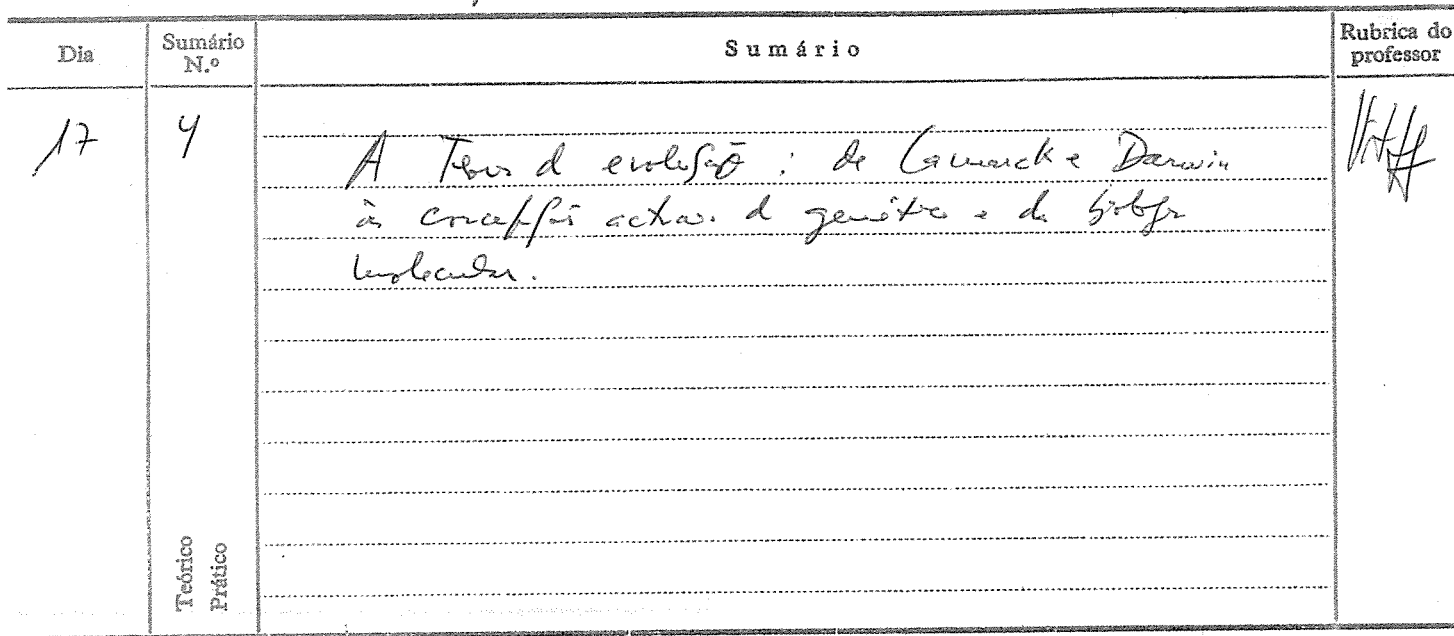 Dia
Sumário N.º
Sumário
Rubrica do professor
17
4
A Teoria d evolução : de Lamarck e Darwin
às concepções actuais d genética e da biologia
molecular.
Teórico
Prático